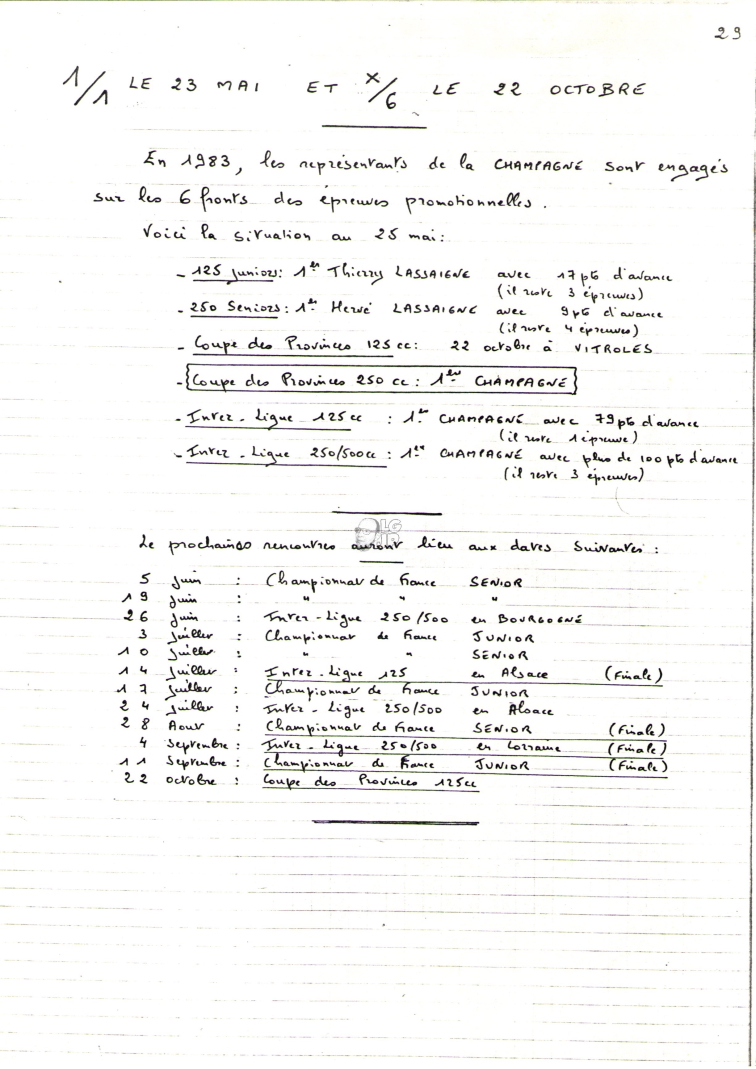 29
1/1 LE 23 MAI ET X/6 LE 22 OCTOBRE
En 1983, les représentants de la CHAMPAGNE sont engagés
sur les 6 fronts des épreuves promotionnelles.
Voici la situation au 25 mai:
- 125 juniors: 1er Thierry LASSAIGNE avec 17 pts d'avance
(il reste 3 épreuves)
- 250 Seniors: 1er Hervé LASSAIGNE avec 9 pts d'avance
(il reste 4 épreuves)
- Coupe des Provinces 125 cc: 22 octobre à VITROLES
- {Coupe des Provinces 250 cc: 1er CHAMPAGNE}
- Inter-Ligue 125 cc : 1er CHAMPAGNE avec 79 pts d'avance
(il reste 1 épreuve)
- Inter-Ligue 250/500cc : 1er CHAMPAGNE avec plus de 100 pts d'avance
(il reste 3 épreuves)
LG
Le prochaines rencontres auront lieu aux dates suivantes :
5 juin : Championnat de France SENIOR
19 juin : " " "
26 juin : Inter-Ligue 250/500 en BOURGOGNE
3 juillet : Championnat de France JUNIOR
10 juillet : " " SENIOR
14 juillet : Inter-Ligue 125 en Alsace (Finale)
17 juillet : Championnat de France JUNIOR
24 juillet : Inter-Ligue 250/500 en Alsace
28 Aout : Championnat de France SENIOR (Finale)
4 Septembre : Inter-Ligue 250/500 en Lorraine (Finale)
11 Septembre : Championnat de France JUNIOR (Finale)
22 octobre : Coupe des Provinces 125cc